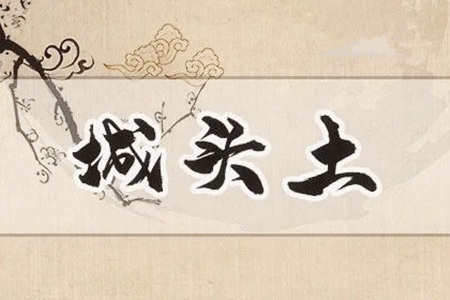 城头土